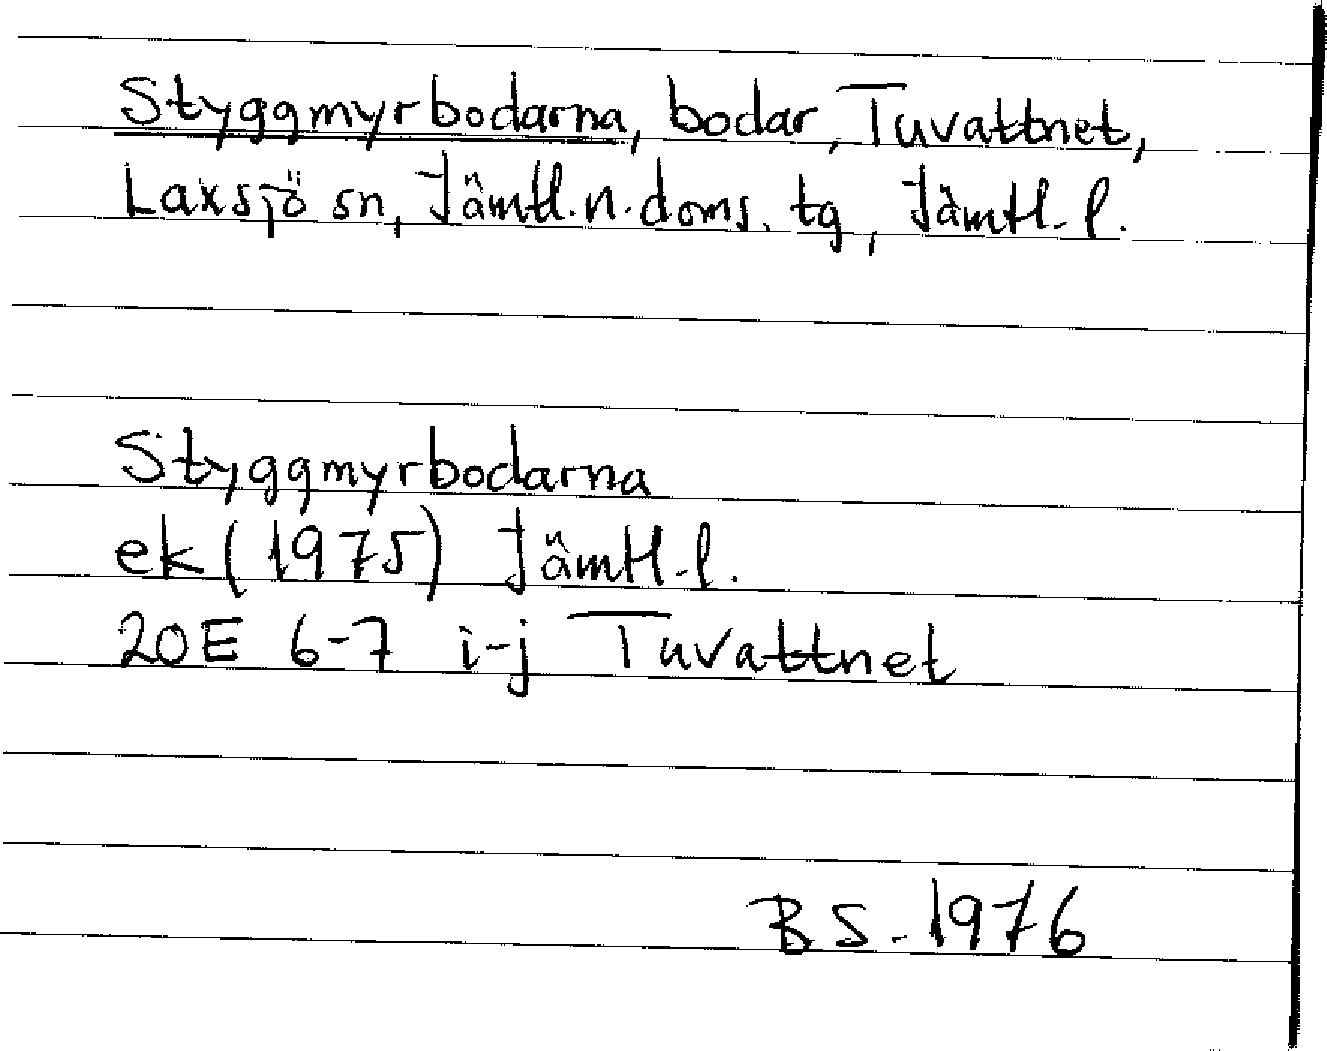 Styggmyrbodarna, bodar, Tuvattnet,
Laxsjö sn, Jämtl. n. doms. tg, Jämtl. l.
Styggmyrbodarna
ek (1975) Jämtl. l.
20E 6-7 i-j Tuvattnet
BS. 1976